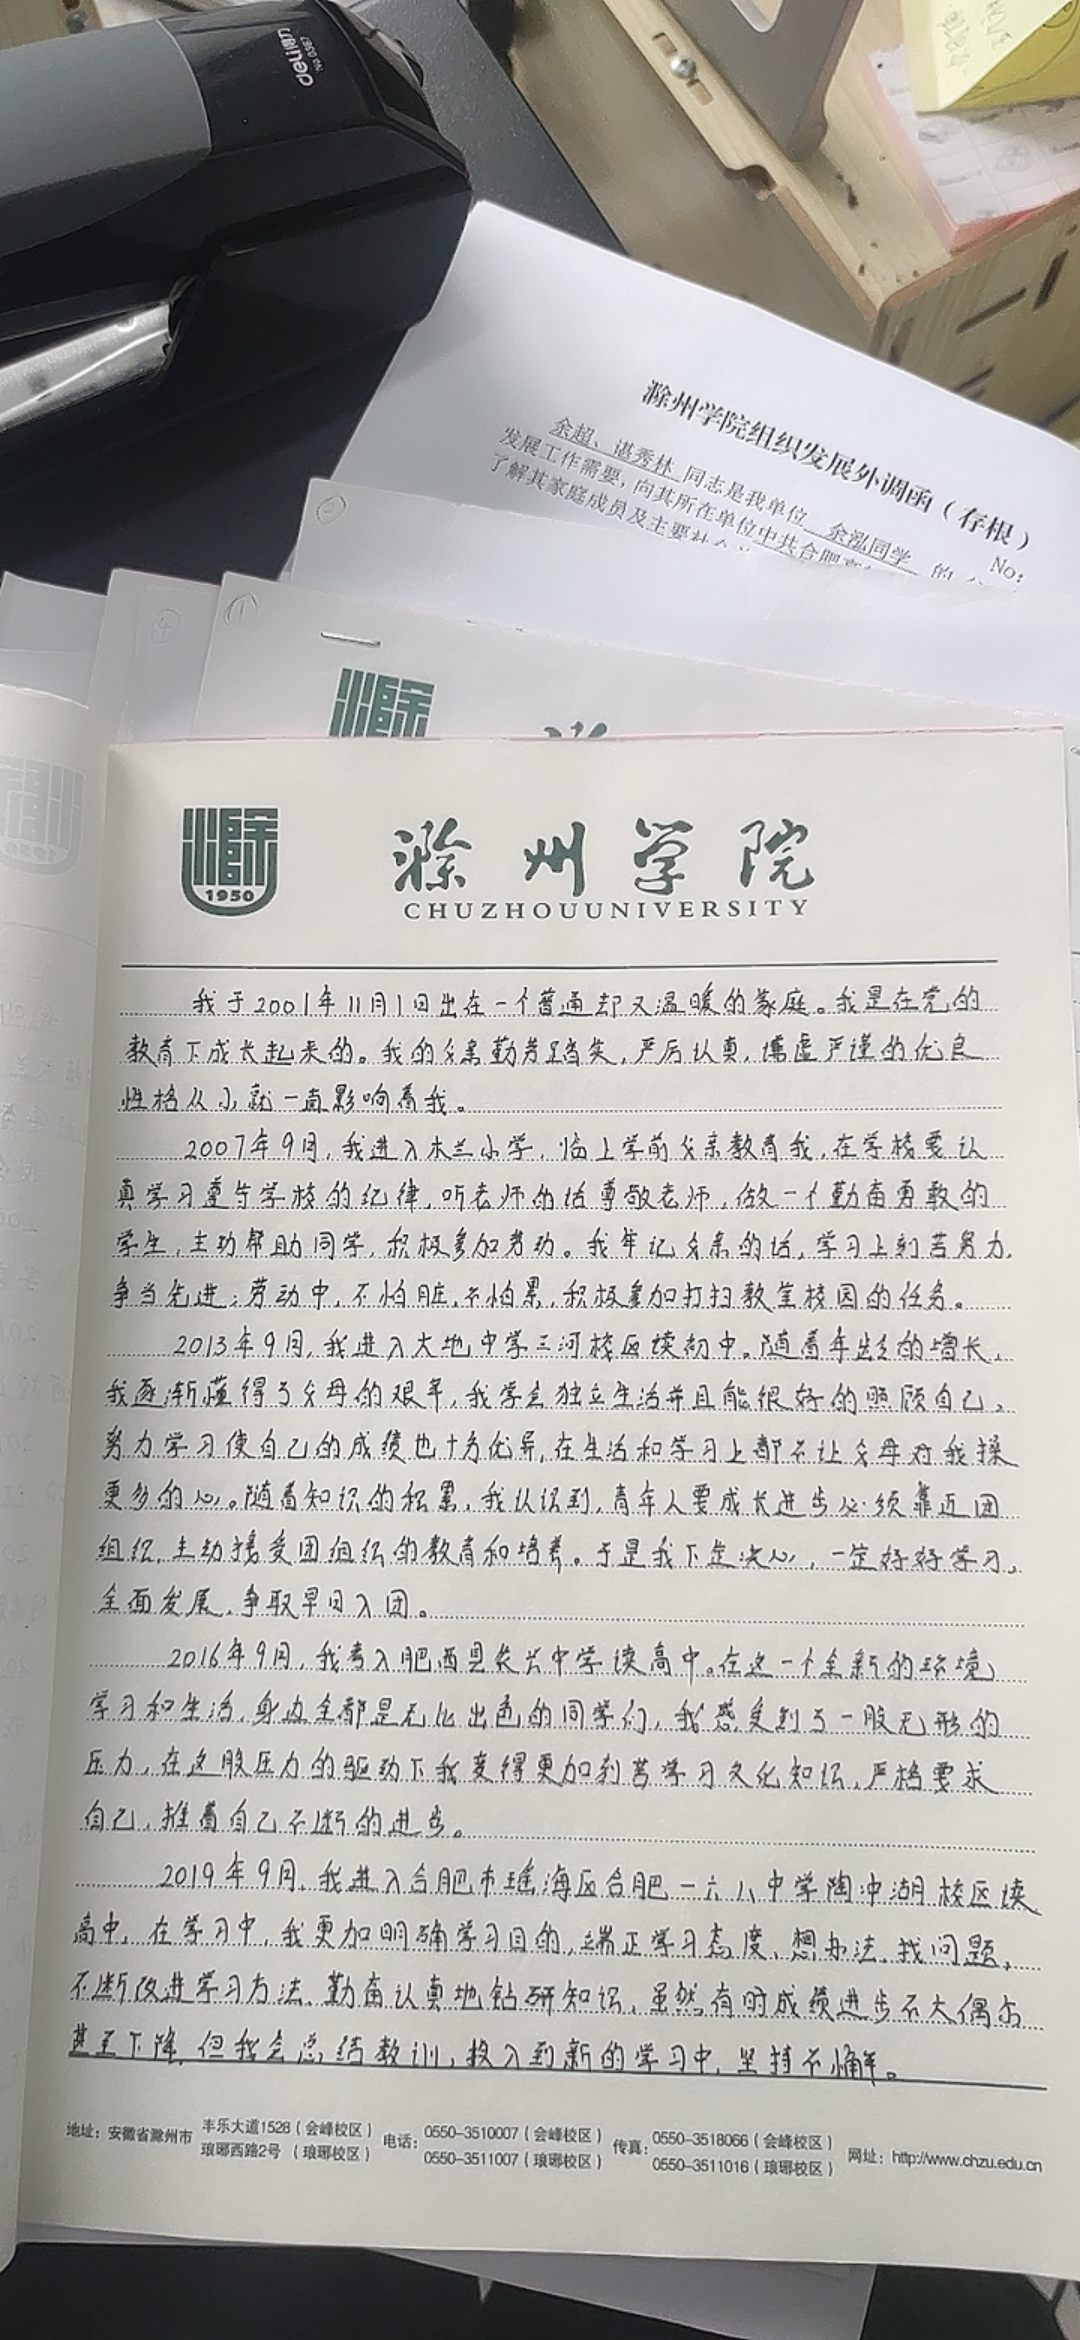 deli 得力
No.0367
滁州学院组织发展外调函（存根）
No:
余超、谌秀林 同志是我单位 余泓同学 的
发展工作需要，向其所在单位中共合肥
了解其家庭成员及主要社会
②
①
4
1950
滁州学院
CHUZHOUUNIVERSITY
我于2001年11月1日出在一个普通却又温暖的家庭。我是在党的
教育下成长起来的。我的父亲勤劳踏实，严厉认真，谦虚严谨的优良
性格从小就一直影响着我。
2007年9月，我进入木兰小学，临上学前父亲教育我，在学校要认
真学习遵守学校的纪律，听老师的话尊敬老师，做一个勤奋勇敢的
学生，主动帮助同学，积极参加劳动。我牢记父亲的话，学习上刻苦努力，
争当先进；劳动中，不怕脏，不怕累，积极参加打扫教室校园的任务。
2013年9月，我进入大地中学三河校区读初中。随着年龄的增长，
我逐渐懂得了父母的艰辛，我学会独立生活并且能很好的照顾自己，
努力学习使自己的成绩也十分优异，在生活和学习上都不让父母对我操
更多的心。随着知识的积累，我认识到，青年人要成长进步必须靠近团
组织，主动接受团组织的教育和培养。于是我下定决心，一定好好学习，
全面发展，争取早日入团。
2016年9月，我考入肥西县农兴中学读高中。在这一个全新的环境，
学习和生活，身边全都是无比出色的同学们，我感受到了一股无形的
压力，在这股压力的驱动下我变得更加刻苦学习文化知识，严格要求
自己，推着自己不断的进步。
2019年9月，我进入合肥市瑶海区合肥一六八中学陶冲湖校区读
高中，在学习中，我更加明确学习目的，端正学习态度、想办法，找问题，
不断改进学习方法，勤奋认真地钻研知识，虽然有时成绩进步不大偶尔
甚至下降，但我会总结教训，投入到新的学习中，坚持不懈。
地址：安徽省滁州市 丰乐大道1528（会峰校区） 电话：0550-3510007（会峰校区） 传真：0550-3518066（会峰校区） 网址：http://www.chzu.edu.cn
琅琊西路2号（琅琊校区） 0550-3511007（琅琊校区） 0550-3511016（琅琊校区）